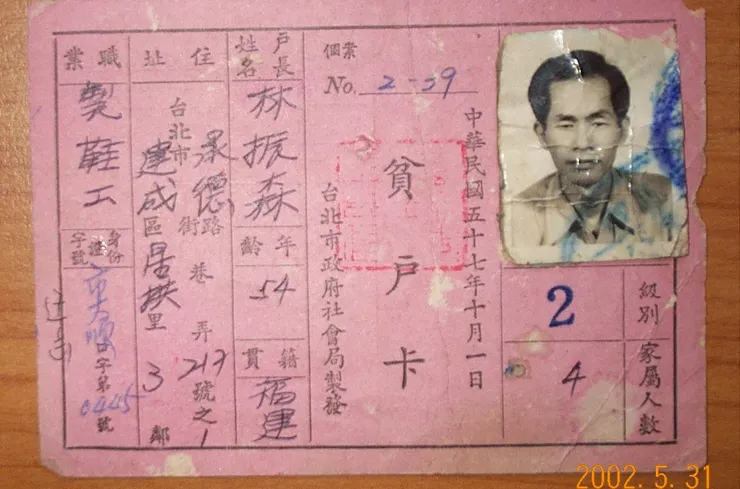 級別
2
家屬人數
4
中華民國五十七年十月一日
貧戶卡
台北市政府社會局製發
個案
No. 2-59
戶長姓名
林振森
年齡
54
籍貫
福建
住址
台北市
承德路街巷弄217號之1
建成區里3鄰
職業
製鞋工
身份證字號
口字第0445號
2002.5.31